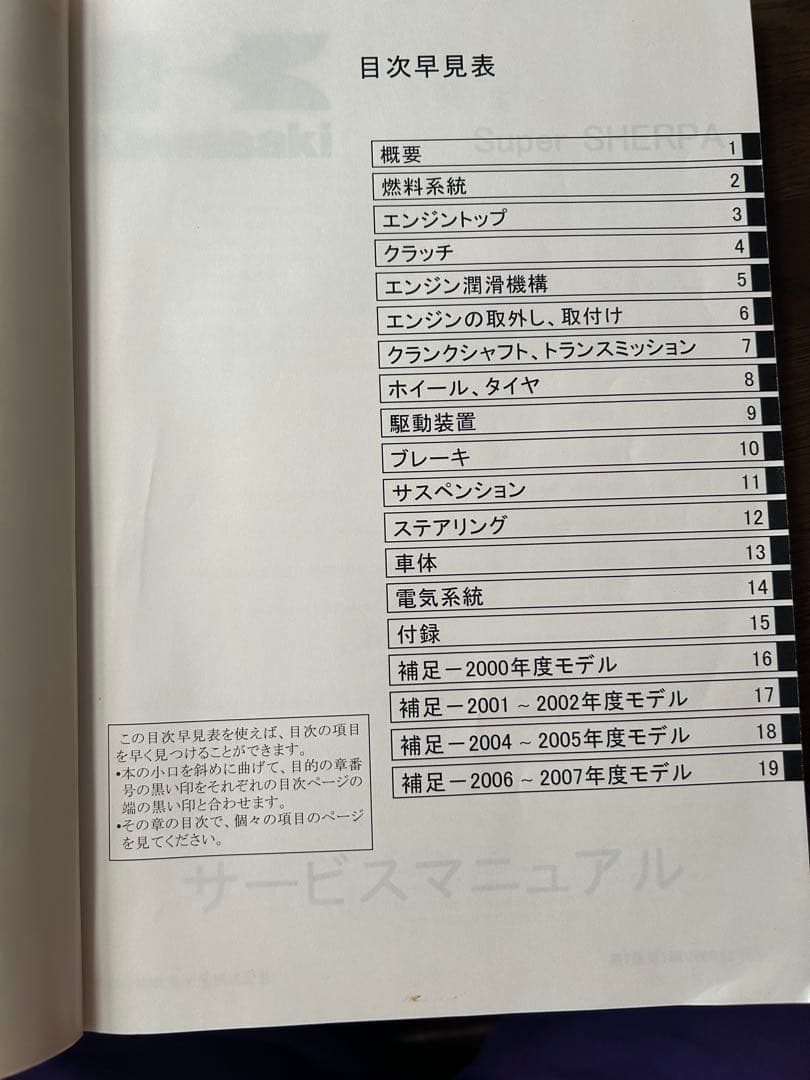 目次早見表
Super SHERPA
概要 1
燃料系統 2
エンジントップ 3
クラッチ 4
エンジン潤滑機構 5
エンジンの取外し、取付け 6
クランクシャフト、トランスミッション 7
ホイール、タイヤ 8
駆動装置 9
ブレーキ 10
サスペンション 11
ステアリング 12
車体 13
電気系統 14
付録 15
補足－2000年度モデル 16
補足－2001 ~ 2002年度モデル 17
補足－2004 ~ 2005年度モデル 18
補足－2006 ~ 2007年度モデル 19
この目次早見表を使えば、目次の項目
を早く見つけることができます。
•本の小口を斜めに曲げて、目的の章番
号の黒い印をそれぞれの目次ページの
端の黒い印と合わせます。
•その章の目次で、個々の項目のページ
を見てください。
サービスマニュアル